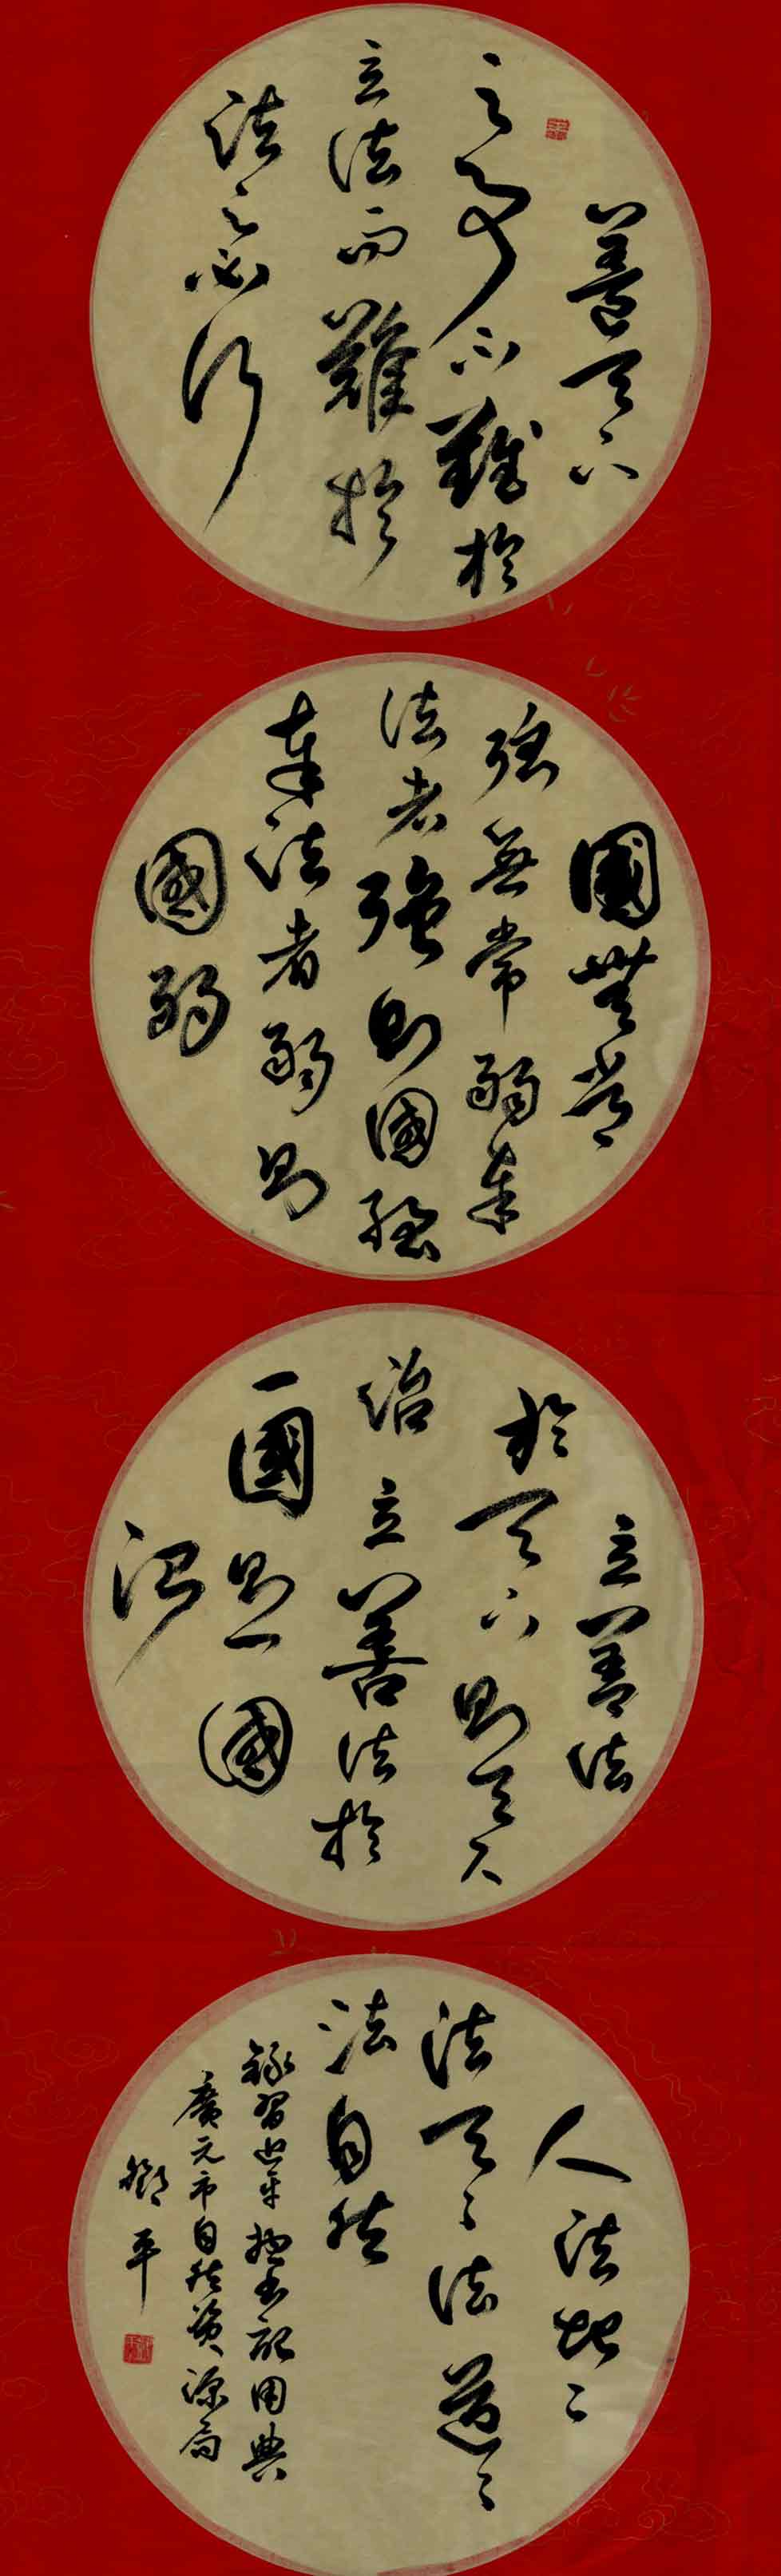 蓋天下
之事不難於
立法而難於
法之必行
國無常
強無常弱奉
法者強則國強
奉法者弱則
國弱
立善法
於天下則天下
治立善法於
一國則一國
治
人法地〻
法天〻法道〻
法自然
錄習近平總書記用典
廣元市自然資源局
平